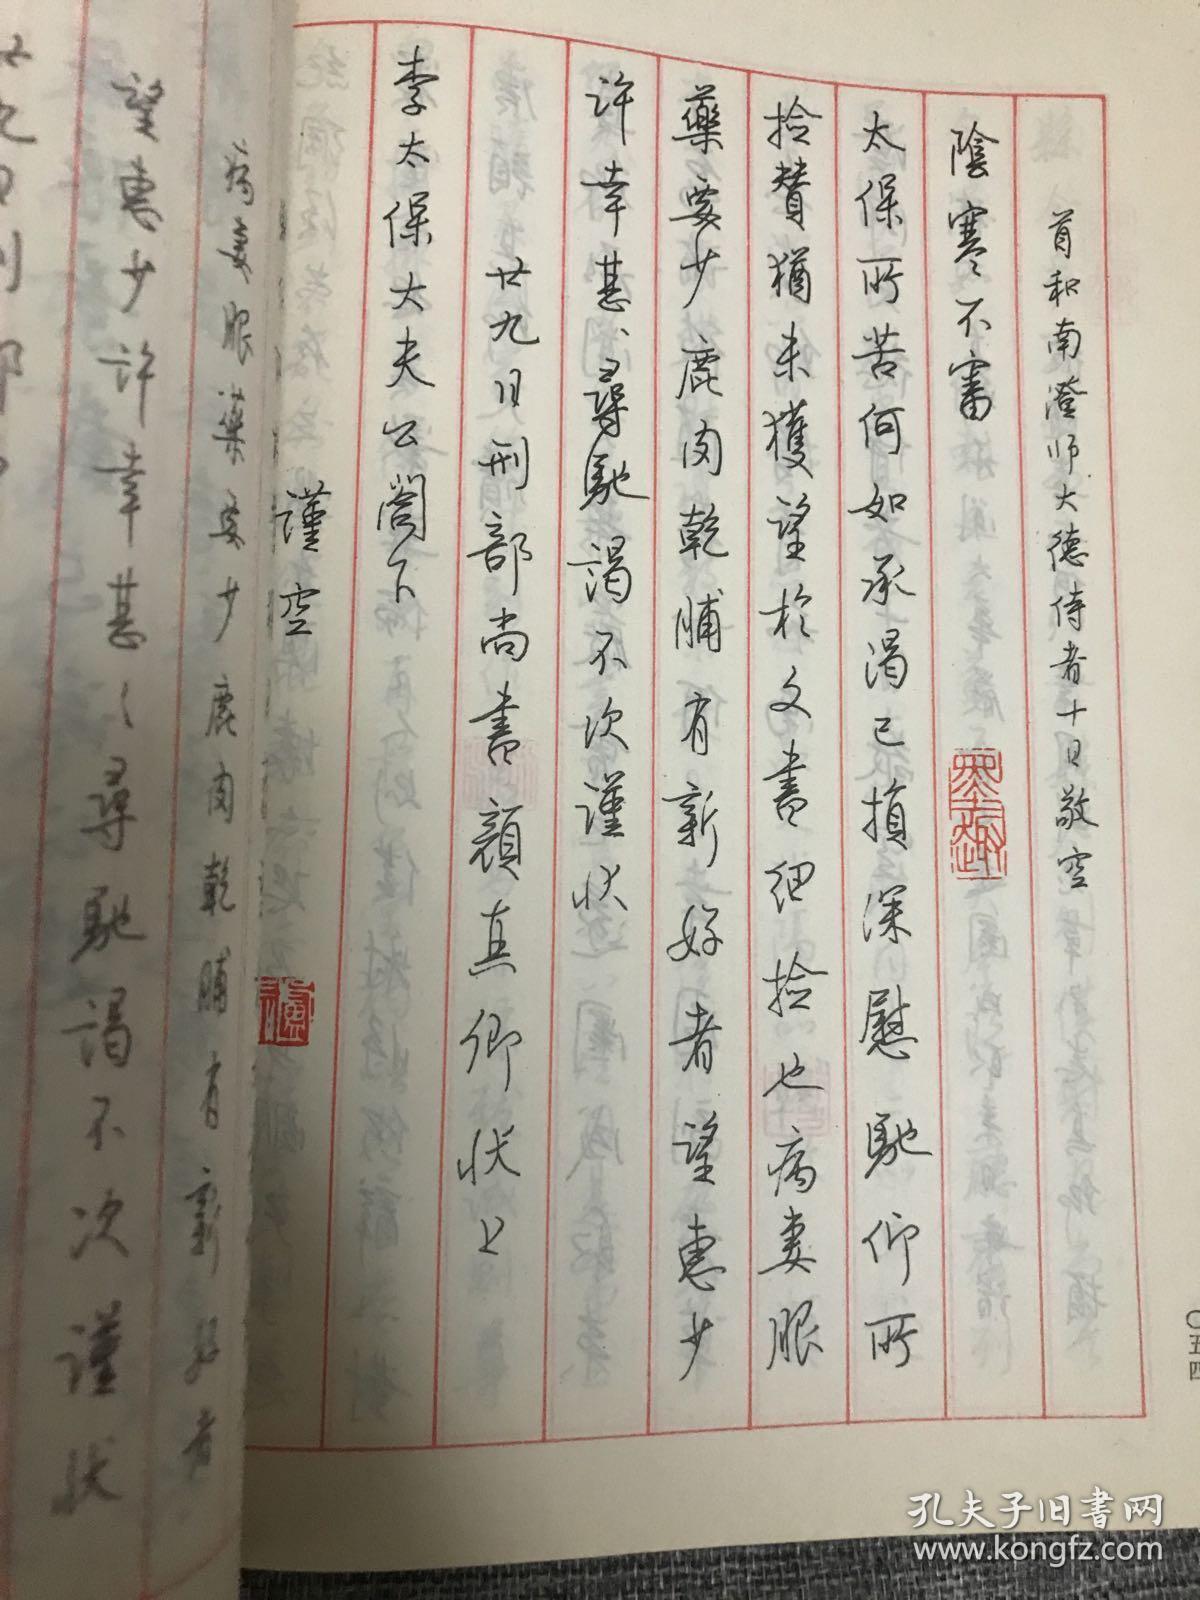 首和南澄师大德侍者十日敬空
陰寒不審
太保所苦何如承渴已損深慰馳仰所
撿贊猶未獲望於文書細撿也病妻服
藥要少鹿肉乾脯有新好者望惠少
許幸甚、尋馳謁不次謹状
廿九日刑部尚書顔真卿状上
李太保大夫公閤下
謹空
病妻服藥要少鹿肉乾脯有新好者
望惠少許幸甚〻尋馳謁不次謹状
廿九日刑部
〇五四
孔夫子旧书网
www.kongfz.com